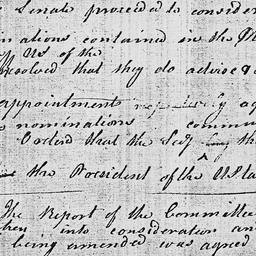 Senate proceeded to consider
nations contained in the
of the
resolved that they do advise &
appointment
nominations commu
Ordered that the Secy the
the President of the U Sta
The Report of the Committee
then into consideration an
being amended was agreed